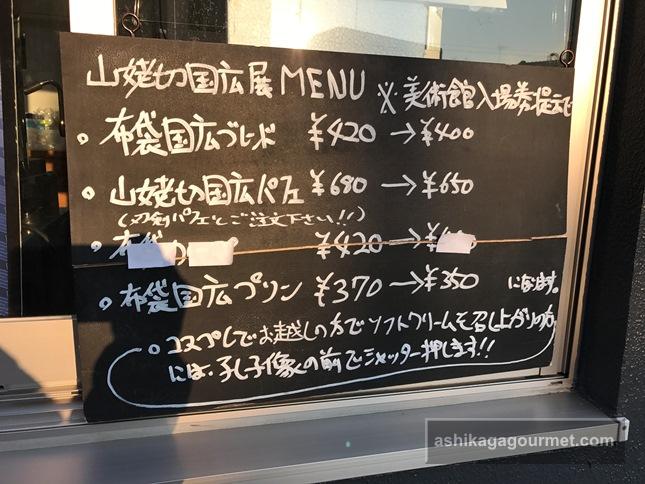 山姥切国広展MENU ※美術館入場券提示で
。布袋国広ブレンド ¥420→¥400
。山姥切国広パフェ ¥680→¥650
(刀剣パフェとご注文下さい!!)
。布袋 ¥420→
。布袋国広プリン ¥370→¥350 になります。
。コスプレでお越しの方でソフトクリームを召し上がりの方
には、孔子像の前でシャッター押します!!
ashikagagourmet.com